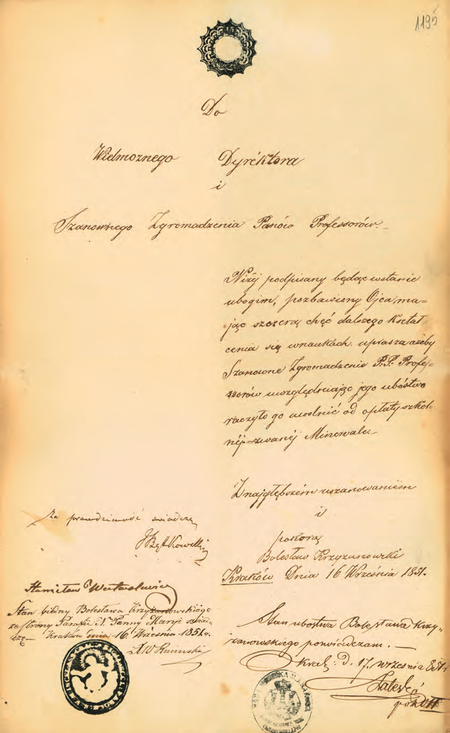 1195
Do
Wielmożnego Dyréktora
i
Szanownego Zgromadzenia Panów Professorów
Niżéj podpisany będąc wstanie
ubogim, pozbawiony Ojca, ma-
jąc szczerą chęć dalszego kształ
cenia się wnaukach uprasza ażeby
Szanowne Zgromadzenie P.P. Profes
sorów uwzględniając jego ubóstwo
raczyło go uwolnić od opłaty szkol
néj zwanéj Minerwale
Znajgłębszém uszanowaniem
i
pokorą
Bolesław Krzyżanowski
Kraków Dnia 16 Września 1851.
Za prawdziwość świadczę
Stanisław
Stan biédny Bolesława Krzyżanowskiégo
ze strony Parafii N. Panny Maryi
Kraków dnia 16 Września 1851 r.
Stan ubóstwa Bolesława Krzy
żanowskiego poświádczam. —
Krak: d. 17. Września 851.